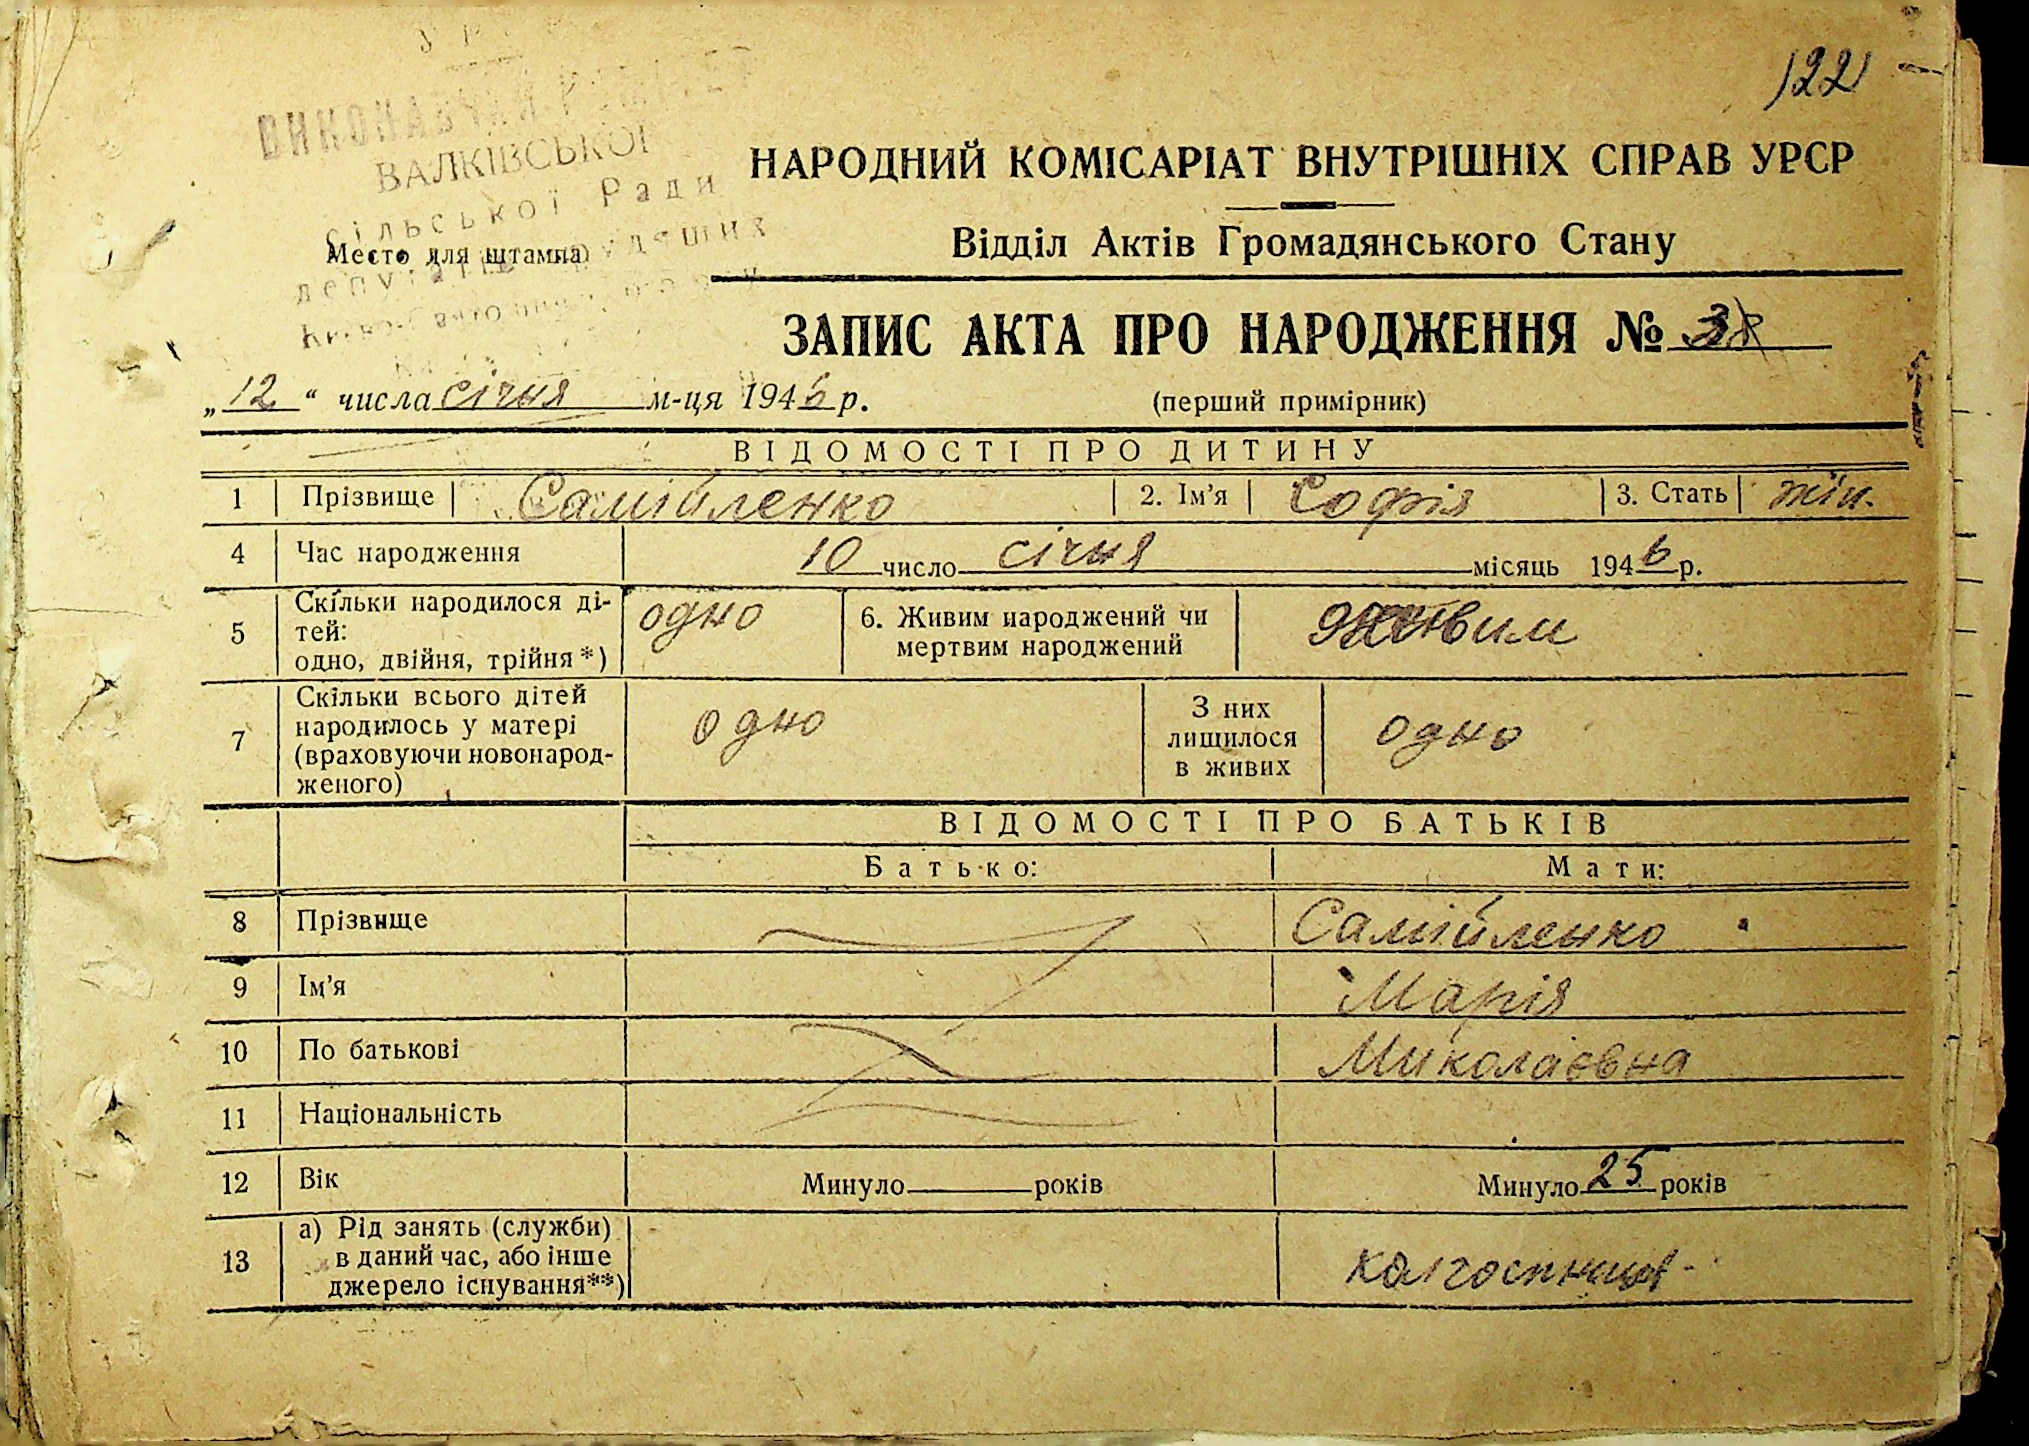 122
ВИКОНАВЧИЙ КОМІТЕТ
ВАЛКІВСЬКОЇ
сільської Ради
депутатів трудящих
Место для штампа)
НАРОДНИЙ КОМІСАРІАТ ВНУТРІШНІХ СПРАВ УРСР
Відділ Актів Громадянського Стану
ЗАПИС АКТА ПРО НАРОДЖЕННЯ №
„12“ числа січня м-ця 1946 р. (перший примірник)
ВІДОМОСТІ ПРО ДИТИНУ
1 Прізвище Самійленко 2. Ім'я Софія 3. Стать жін.
4 Час народження 10 число січня місяць 1946 р.
5 Скільки народилося ді-
тей:
одно, двійня, трійня*) одно
6. Живим народжений чи
мертвим народжений живим
7 Скільки всього дітей
народилось у матері
(враховуючи новонарод-
женого) одно
З них
лишилося
в живих одно
ВІДОМОСТІ ПРО БАТЬКІВ
Батько: Мати:
8 Прізвище Самійленко
9 Ім'я Марія
10 По батькові Миколаєвна
11 Національність
12 Вік Минуло років Минуло 25 років
13 а) Рід занять (служби)
в даний час, або інше
джерело існування**) колгоспниця